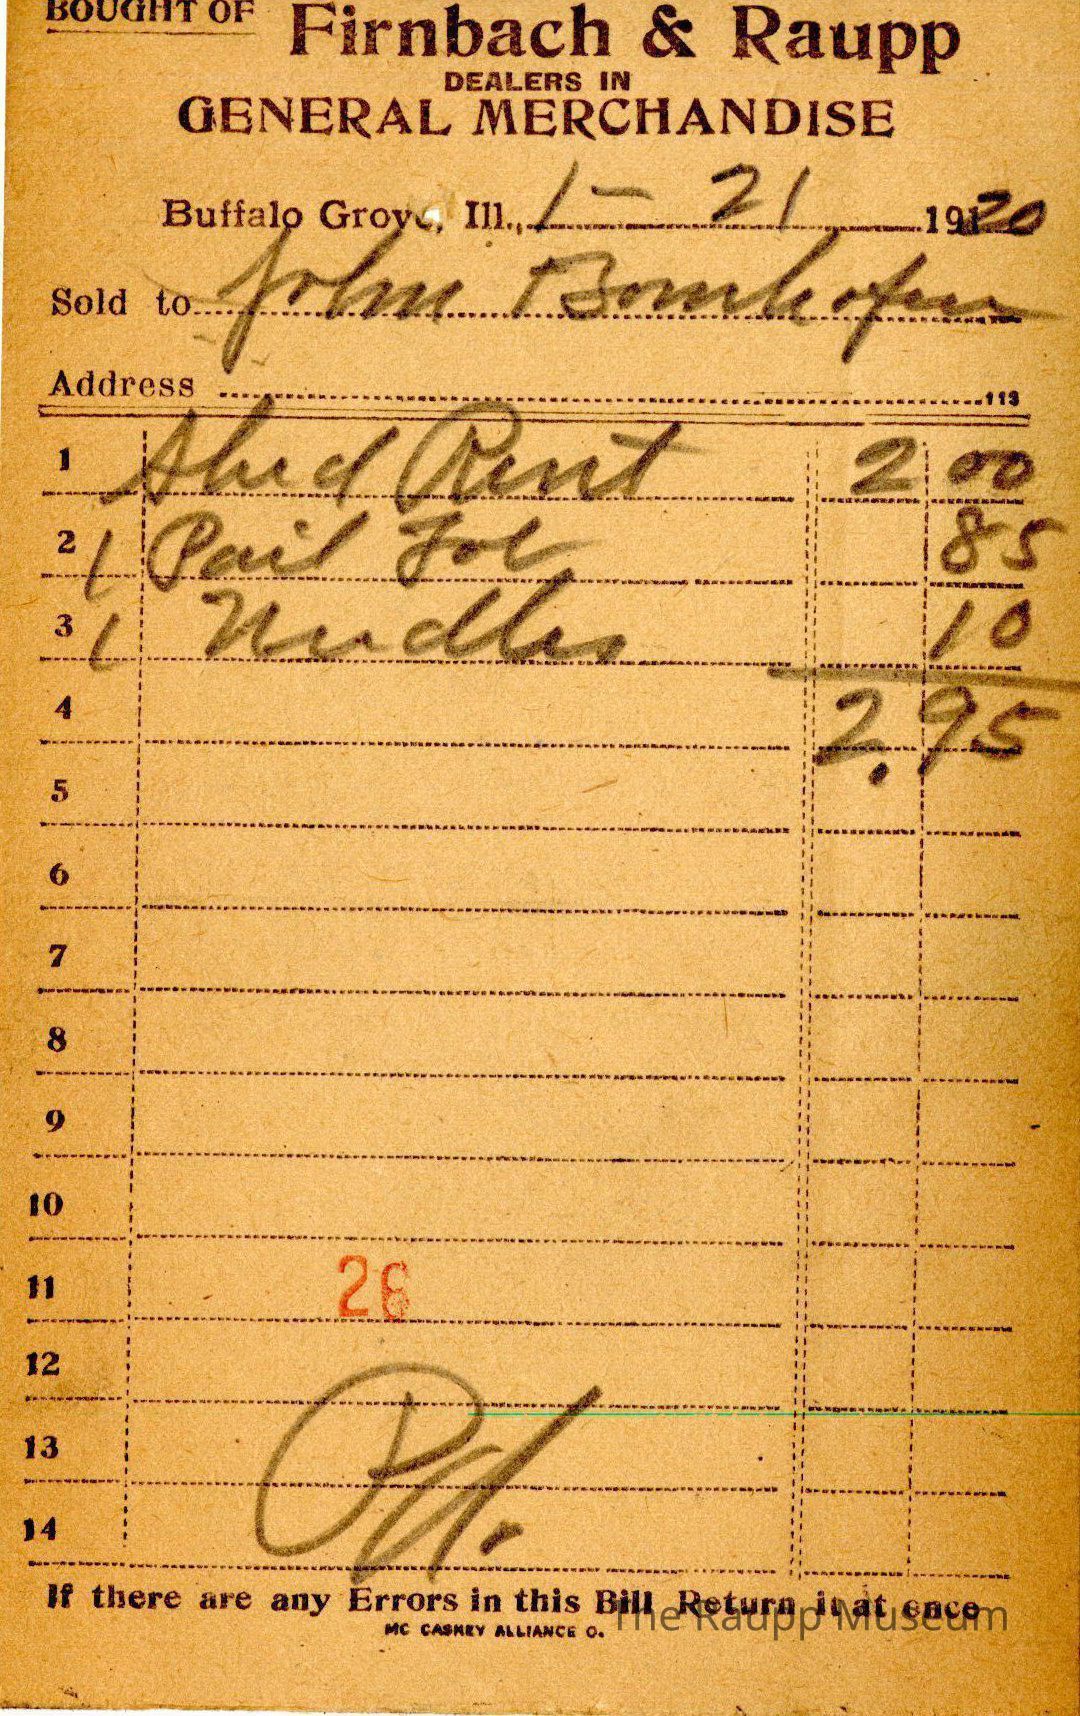 BOUGHT OF Firnbach & Raupp
DEALERS IN
GENERAL MERCHANDISE
Buffalo Grove, Ill., 1 - 21 1920
Sold to John Bomhofen
Address 113
1 Shed Rent 2 00
2 1 Pail 85
3 1 Needles 10
4 2.95
5
6
7
8
9
10
11 26
12
13 Pd.
14
If there are any Errors in this Bill Return it at once
MC CASKEY ALLIANCE O.
The Raupp Museum